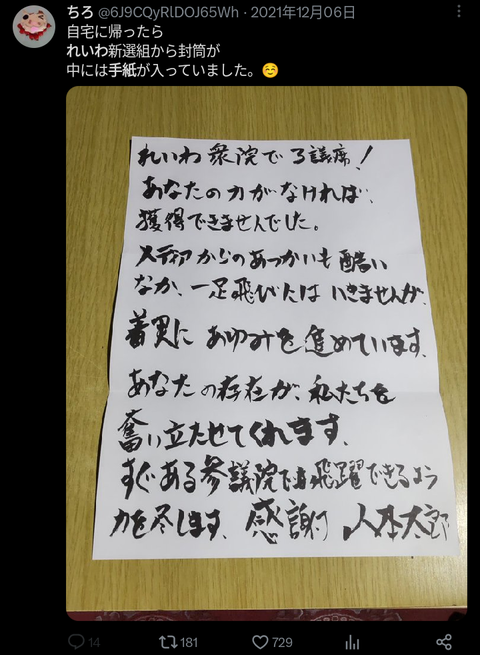 ちろ @6J9CQyRlDOJ65Wh · 2021年12月06日
自宅に帰ったら
れいわ新選組から封筒が
中には手紙が入っていました。☺️
れいわ衆院で3議席!
あなたの力がなければ、
獲得できませんでした。
メディアからのあつかいも酷い
なか、一足飛びには いきませんが、
着実に あゆみを進めています。
あなたの存在が、私たちを
奮い立たせてくれます。
すぐある参議院では飛躍できるよう
力を尽します。 感謝 山本太郎
14
181
729